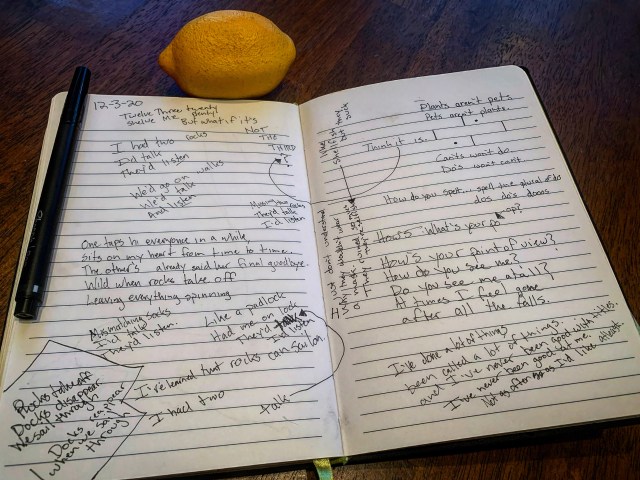 12-3-20
Twelve Three twenty
shelve Me plenty!
But what if it's
NOT
THE
THIRD
?
I had two rocks
I'd talk
They'd listen
We'd go on walks
We'd talk
And listen
Missing two rocks
They'd talk
I'd listen
One taps hi everyonce in a while,
sits on my heart from time to time.
The other's already said her final goodbye.
Wild when rocks take off
Leaving everything spinning
Mismatching socks
I'd talk
They'd listen.
Like a padlock
Had me on lock
They'd talk
I'd listen
I've learned that rocks can sail on.
I had two
talk
Rocks take off
Docks disappear
We sail through
Docks
when we sail
through
Plants aren't pets
Pets aren't plants.
Think it is.
Cants won't do
Do's won't cant
How do you spot... spell the plural of do
dos do's doos
How's What's your po
op?
How's your point of view?
How do you see me?
Do you see me at all?
At times I feel gone
after all the falls.
I've done a lot of things
been called a lot of things.
and I've never been good with titles.
I've never been good at me.
Not as often as I'd like at least.
I just don't understand
why they wouldn't wear